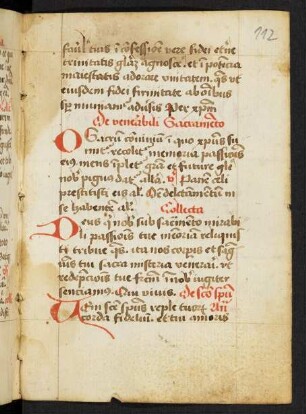 112
famulis tuis i cōfessione vere fidei et̄ne
trinitatis glaz agnosce et i potīcia
maiestatis adorare vnitatem. qs vt
eiusdem fidei firmitate ab oībus
sp muniamur aduersis Per xpm
De venerabili Sacramēto
O Sacrum conuiuiū i quo xpus su
mitur recolitur memoria passionis
eius mens impletur grā et future glē
nobis pignus datur alla. v Panē celi
prestitisti eis al. Oē delectamentū in
se habentē al. Collecta
Deus qui nob sub sacramēto mirabi
li passionis tue memoriā reliquis
ti tribue qs. ita nos corpis et sāg
nis tui sacra misteria venerari. vt
redempcionis tue fructū in nob iugiter
senciamus. Qui viuis. De sco spu
Veni scē spūs reple tuorū An
corda fideliū. et tui amoris